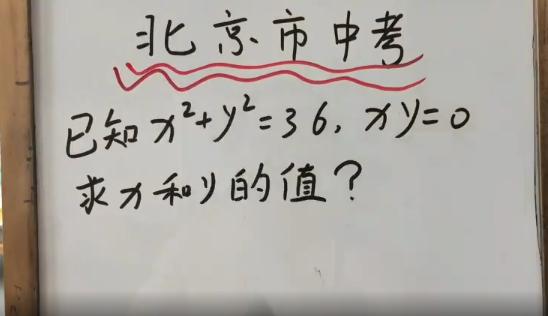 北京市中考
已知x²+y²=36, xy=0
求x和y的值?